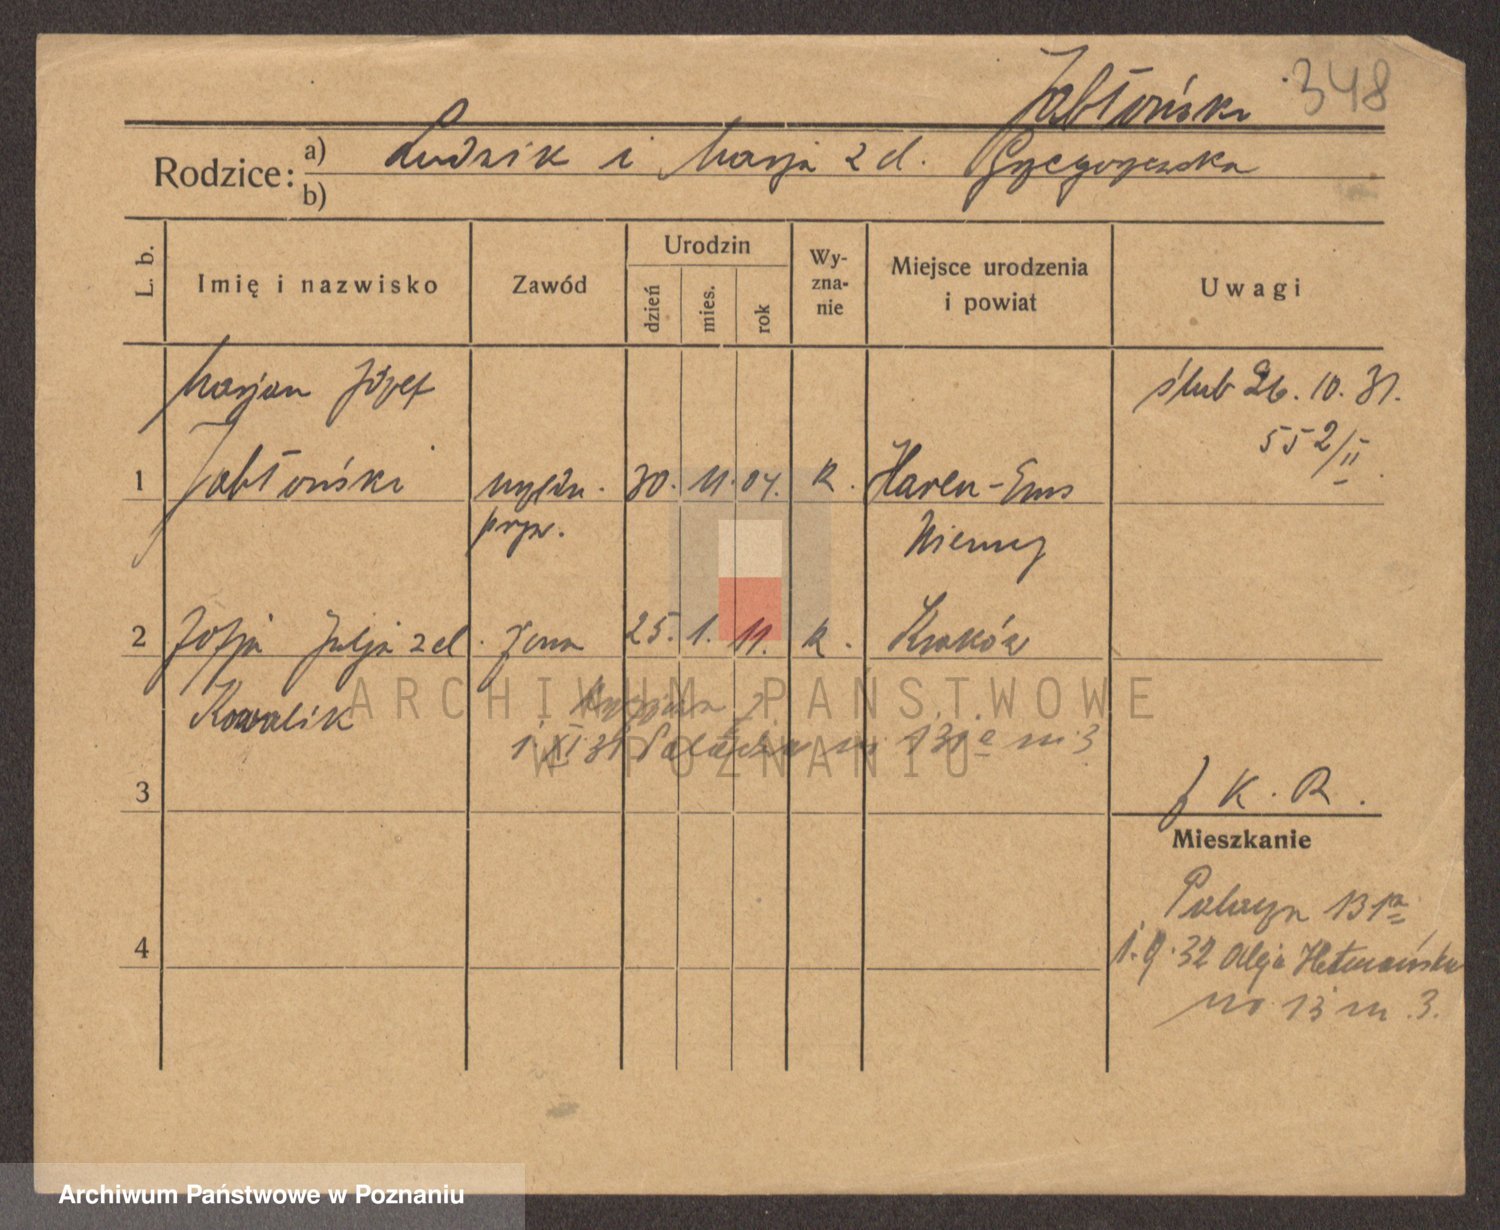 Jabłoński 348
Rodzice: a) Ludwik i Marja z d. Grzegorzewska
b)
L. b.
Imię i nazwisko
Zawód
Urodzin
dzień
mies.
rok
Wy-
zna-
nie
Miejsce urodzenia
i powiat
Uwagi
Marjan Józef
ślub 26. 10. 31.
552/II
1 Jabłoński 30. 11. 04. k. Haren-Ems
Niemcy
2 Zofja Julja z d. żona 25. 1. 11. k. Kraków
Kowalik
ARCHIWUM PAŃSTWOWE
W POZNANIU
1 XI 31 131a m 3
3
K. R.
Mieszkanie
131a
4
1. 9. 32 Aleja Hetmańska
no 13 m. 3.
Archiwum Państwowe w Poznaniu